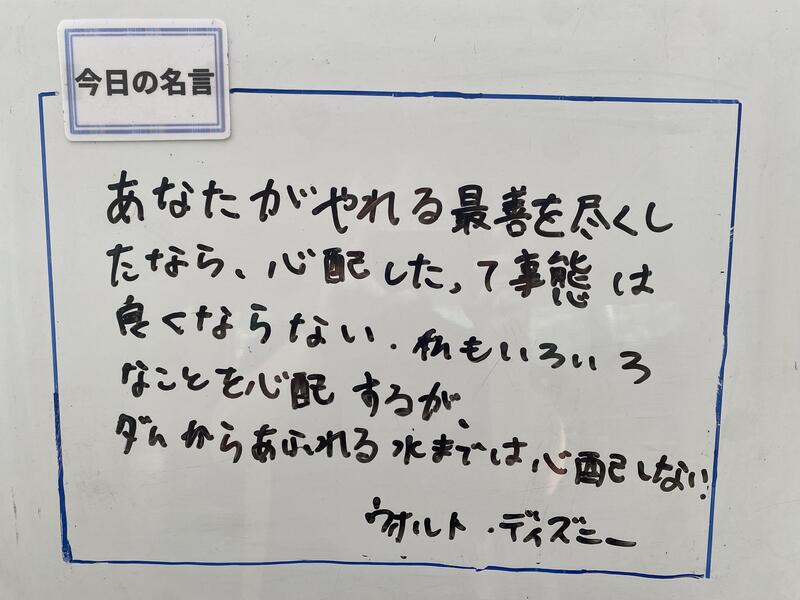 今日の名言
あなたがやれる最善を尽くし
たなら、心配したって事態は
良くならない.私もいろいろ
なことを心配するが、
ダムからあふれる水までは心配しない!
ウォルト・ディズニー